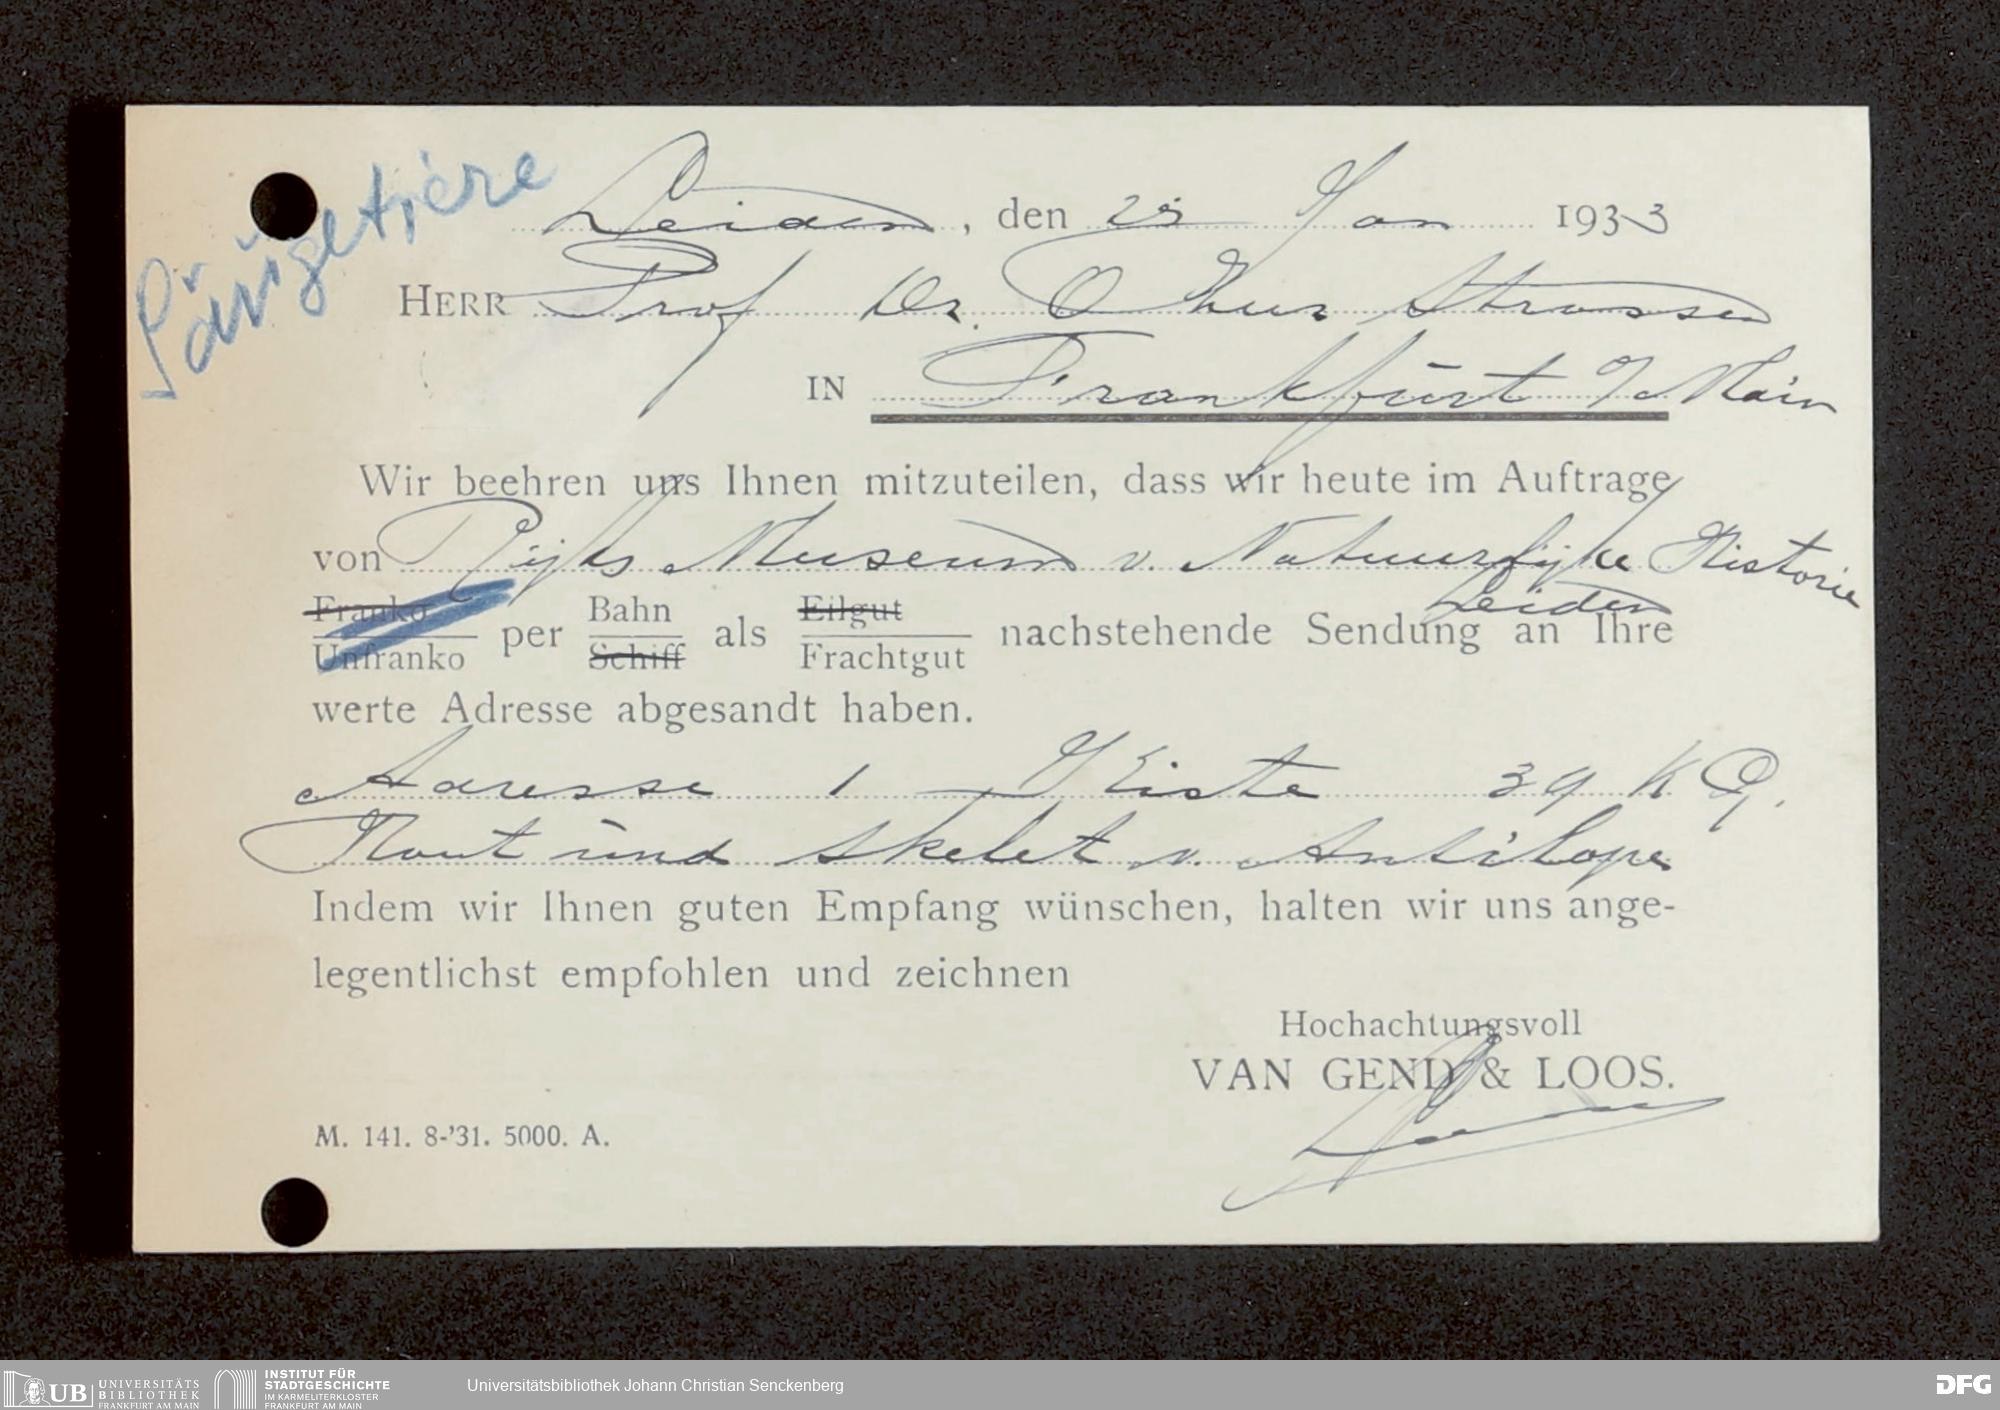 Säugetiere
Leiden, den 25 Jan 1933
HERR Prof Dr. O Zhur Strassen
IN Frankfurt a/ Main
Wir beehren uns Ihnen mitzuteilen, dass wir heute im Auftrage
von Rijks Museum v. Natuurlijke Historie
Leiden
Franko per Bahn als Eilgut nachstehende Sendung an Ihre
Unfranko Schiff Frachtgut
werte Adresse abgesandt haben.
Adresse 1 Kiste 39 KG.
Hout und skelet v. Antilope
Indem wir Ihnen guten Empfang wünschen, halten wir uns ange-
legentlichst empfohlen und zeichnen
Hochachtungsvoll
VAN GEND & LOOS.
M. 141. 8-'31. 5000. A.
UB UNIVERSITÄTS
BIBLIOTHEK
FRANKFURT AM MAIN
INSTITUT FÜR
STADTGESCHICHTE
IM KARMELITERKLOSTER
FRANKFURT AM MAIN
Universitätsbibliothek Johann Christian Senckenberg
DFG